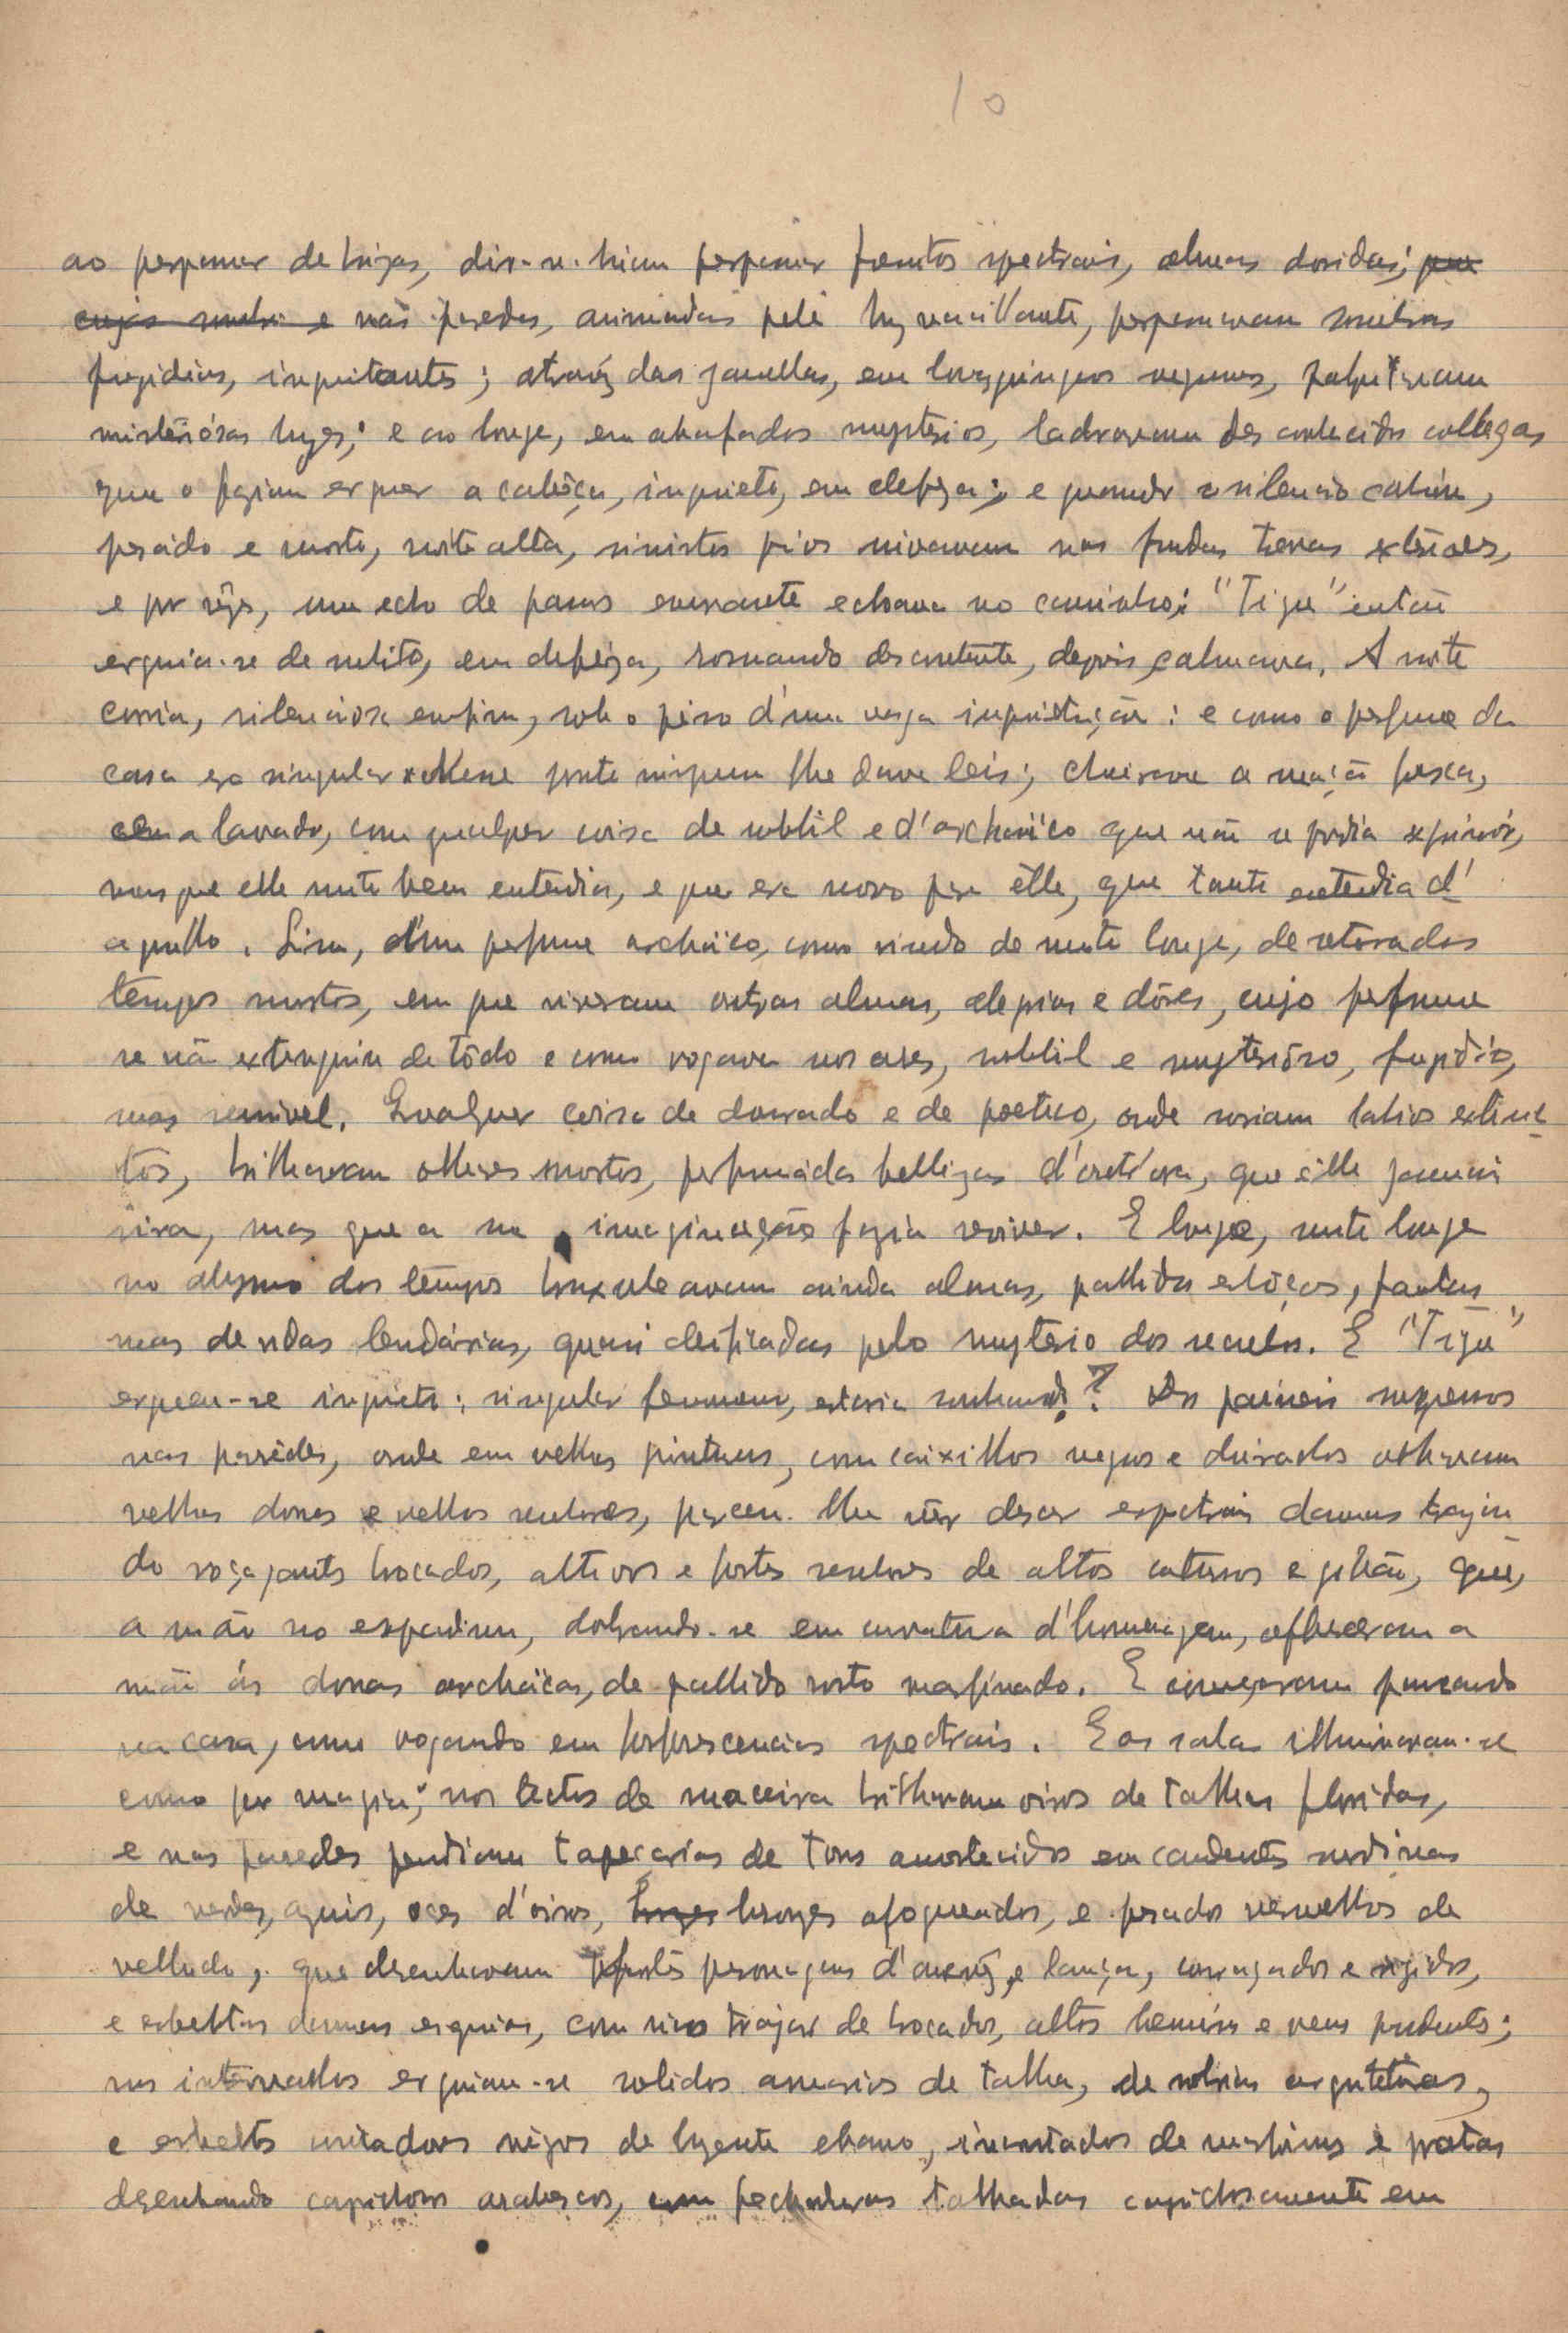 10
ao perpassar de brizas, dir-se-hiam perpassar prantos spectrais, almas doridas;
e nas paredes, animadas pela luz vacillante, perpassavam sombras
fugidias, inquietantes; atravéz das janellas, em longinquos negrumes, palpitavam
misteriósas luzes; e ao longe, em abafados mysterios, ladravam desconhecidos collegas
que o faziam erguer a cabêça, inquieto, em defeza; e quando o silencio cahia,
pesado e morto, noite alta, sinistros pios vivavam nas fundas trevas exteriores,
e por vêzes, um echo de passos echoava no caminho: "Tigre" então
erguia-se de subito, em defêza, rosnando descontente, depois, calmava. A noite
corria, silenciosa emfim, sob o pêso d'uma vaga inquietação: e como o perfume da
casa era singular n'aquelle ponte ninguem lhe dava leis; cheirava a maçã fresca,
a lavado, com qualquer coisa de subtil e d'archaïco que não se podia exprimir,
mas que elle muito bem entendia, e que era novo para êlle, que tanto entendia d'
aquillo. Sim, d'um perfume archaïco, como vindo de muito longe, de
tempos mortos, em que viveram outras almas, alegrias e dôres, cujo perfume
se não extinguira de tôdo e como vogava nos ares, subtil e mysterióso, fugidio,
mas sensivel. Qualquer coisa de dourado e de poetico, onde sorriam labios extinc-
tos, brilhavam olhares mortos, perfumadas bellezas d'outr'ora, que êlle jamais
vira, mas que a sua imaginação fazia reviver. E longe, muito longe
no abysmo dos tempos bruxuleavam ainda almas, pallidos esbôços, fantas
mas de vidas lendárias, quasi deificadas pelo mysterio dos seculos. E "Tigre"
ergueu-se inquieto; singular fenomeno, estaria sonhando? Dos paineis suspensos
nas parêdes, onde em velhas pinturas, com caixilhos negros e doirados olhavam
velhas donas e velhos senhores, pareceu-lhe vêr descer espectrais damas trajan
do roçagantes brocados, altivos e fortes senhores de altos cothurnos e gibão, que,
a mão no espadim, dobrando-se em curvatura d'homenagem, offereceram a
mão ás donas archaïcas, de pallido rosto marfinado. E começaram passeando
na casa, como vogando em fosforescencias spectrais. E as salas illuminaram-se
como por magia; nos tectos de maceira brilhavam oiros de talhas floridas,
e nas paredes pendiam tapeçarias de tons amortecidos em candentes surdinas
de verdes, azuis, ocres d'oiros, bronzes afogueados, e pesados vermelhos de
velludo, que desenhavam fortes personagens d'arnêz e lança, couraçados e rigidos,
e esbeltas damas esguias, com rico trajar de brocados, altos hennins e veus pendentes;
nos intervallos erguiam-se solidos armarios de talha, de sobrias arquiteturas,
e esbeltos contadores negros de luzente ebano, incrustados de marfins e pratas
desenhando caprichosos arabescos, com fechaduras talhadas caprichosamente em